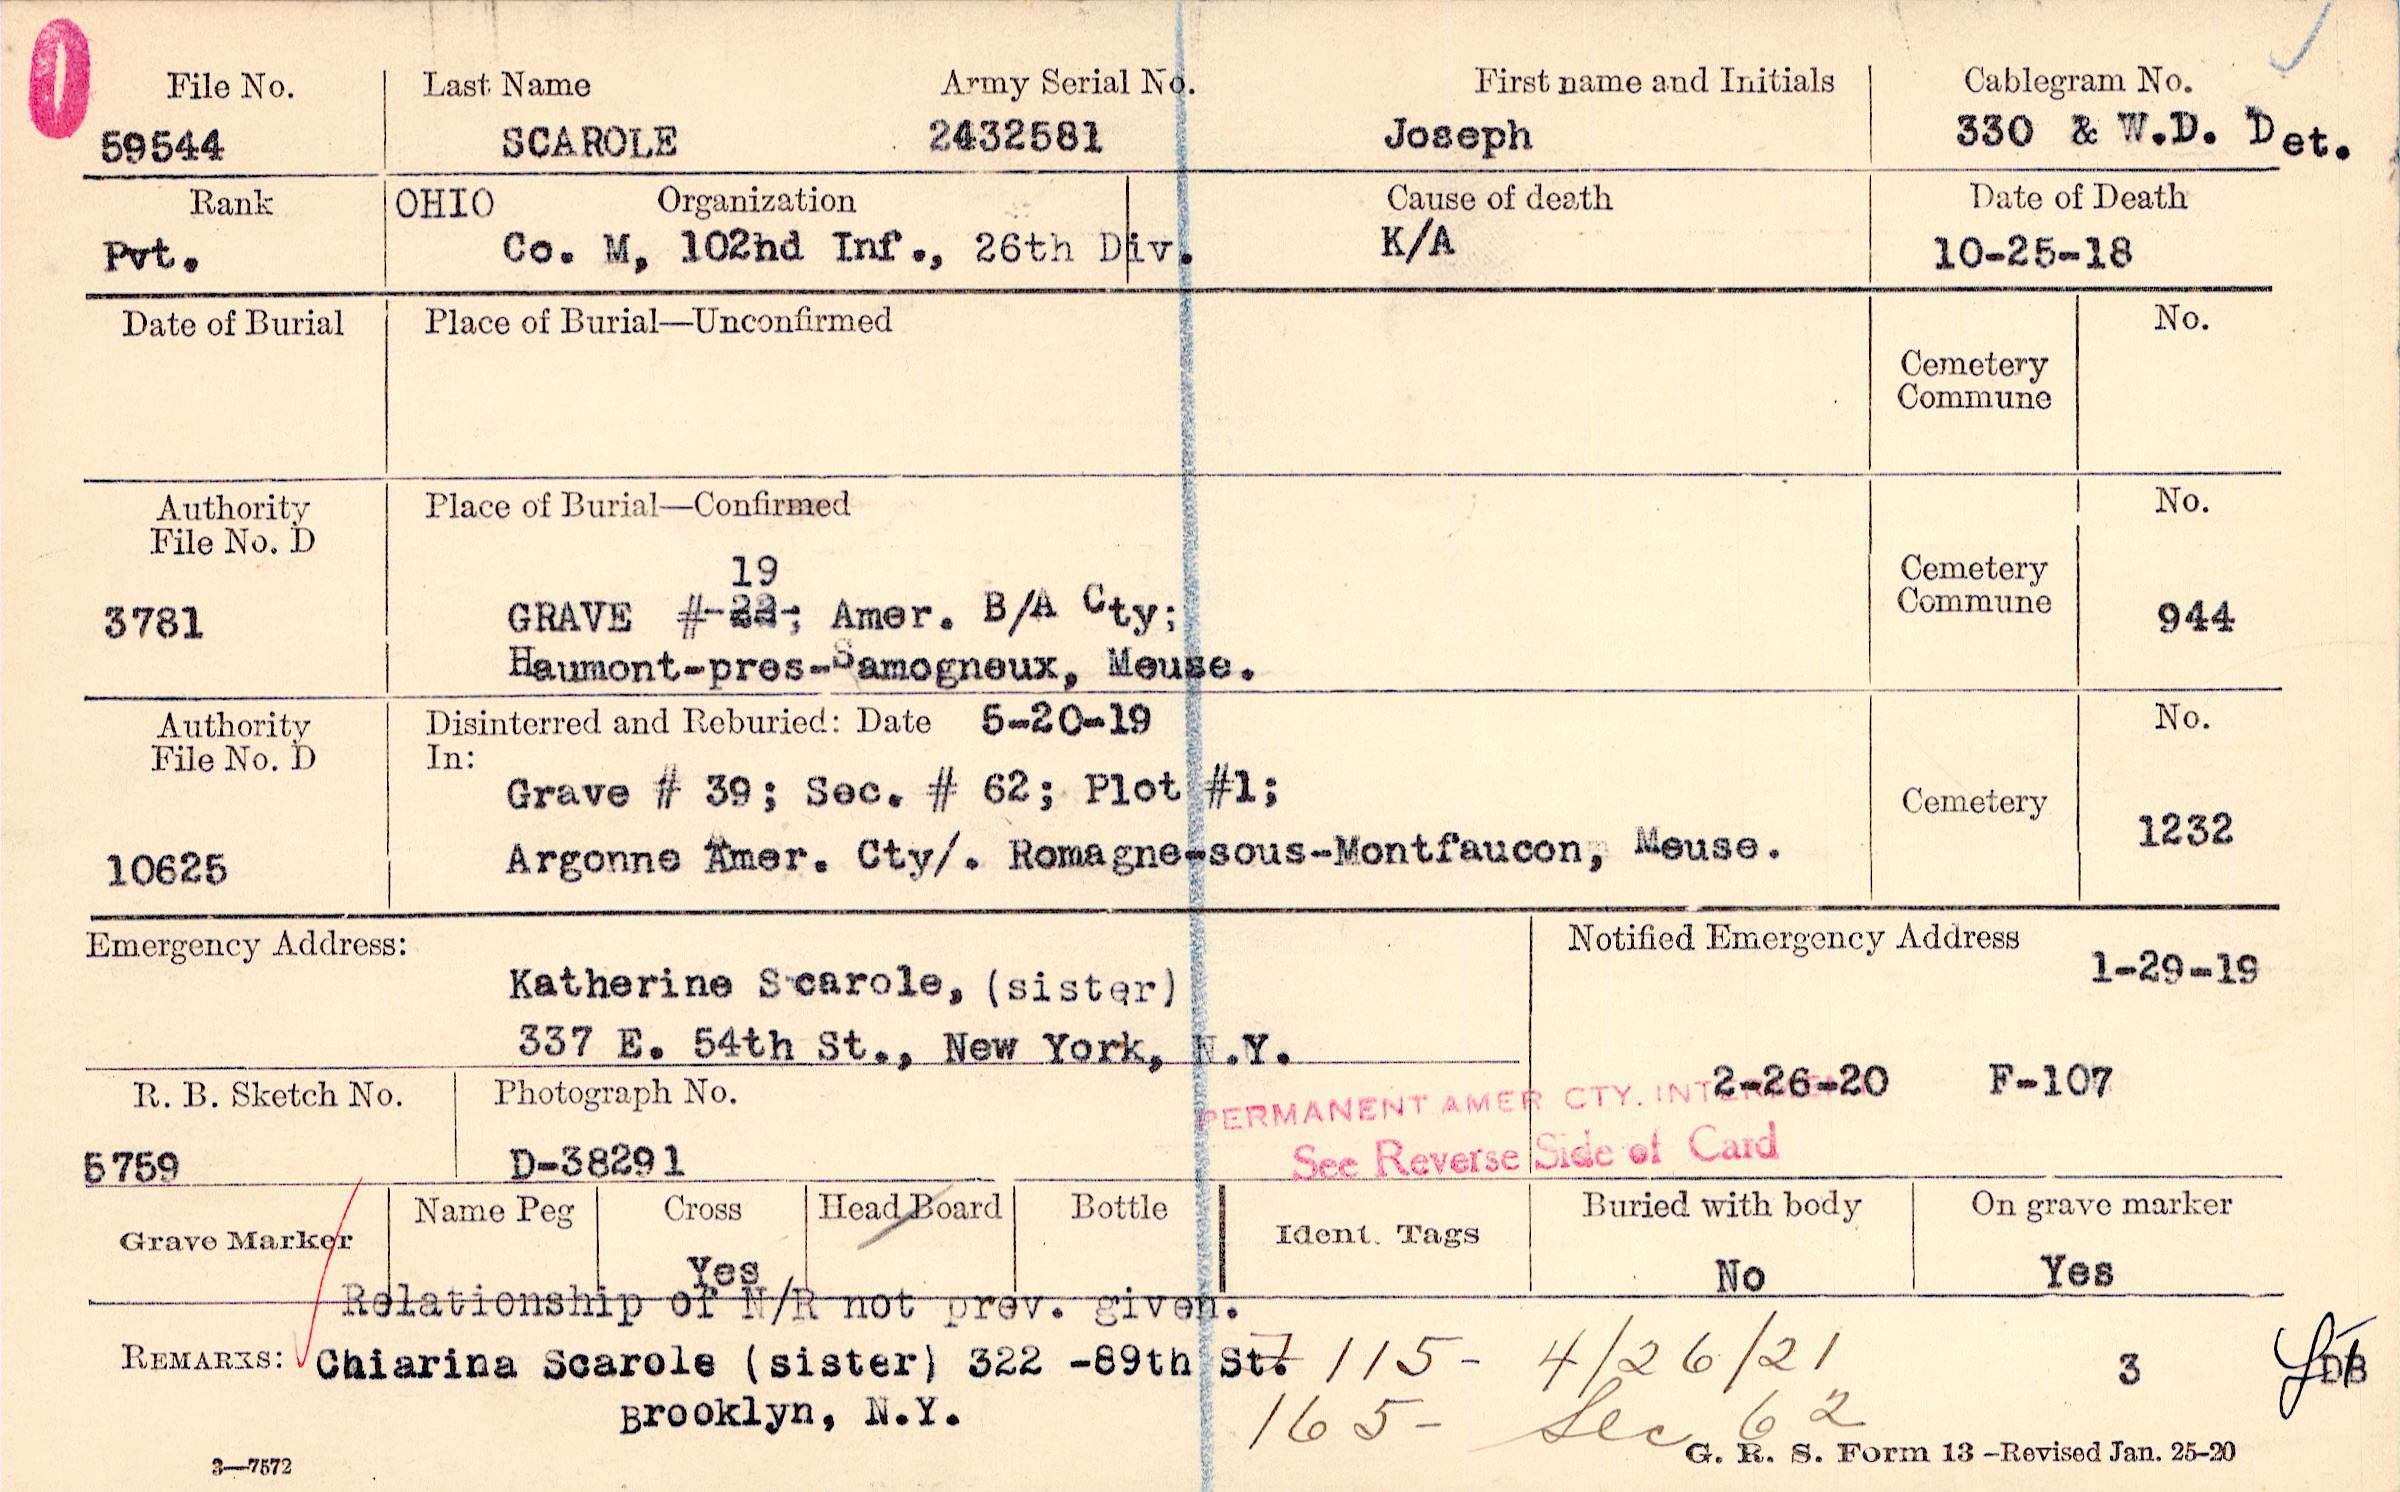 File No. Last Name Army Serial No. First name and Initials Cablegram No.
59544 SCAROLE 2432581 Joseph 330 & W.D. Det.
Rank OHIO Organization Cause of death Date of Death
Pvt. Co. M, 102nd Inf., 26th Div. K/A 10-25-18
Date of Burial Place of Burial—Unconfirmed No.
Cemetery
Commune
Authority Place of Burial—Confirmed No.
File No. D
19
Cemetery
Commune
3781 GRAVE #-22-; Amer. B/A Cty; 944
Haumont-pres-Samogneux, Meuse.
Authority Disinterred and Reburied: Date 5-20-19 No.
File No. D In:
Grave # 39; Sec. # 62; Plot #1; Cemetery
10625 Argonne Amer. Cty/. Romagne-sous-Montfaucon, Meuse. 1232
Emergency Address: Notified Emergency Address
Katherine Scarole, (sister) 1-29-19
337 E. 54th St., New York, N.Y.
R. B. Sketch No. Photograph No. 2-26-20 F-107
PERMANENT AMER CTY. INTERMENT
5759 D-38291 See Reverse Side of Card
Grave Marker Name Peg Cross Head Board Bottle Ident. Tags Buried with body On grave marker
Yes No Yes
Relationship of N/R not prev. given.
REMARKS: Chiarina Scarole (sister) 322 -89th St. 115- 4/26/21 3 DB
Brooklyn, N.Y. 165- Sec 62
3—7572 G. R. S. Form 13 -Revised Jan. 25-20